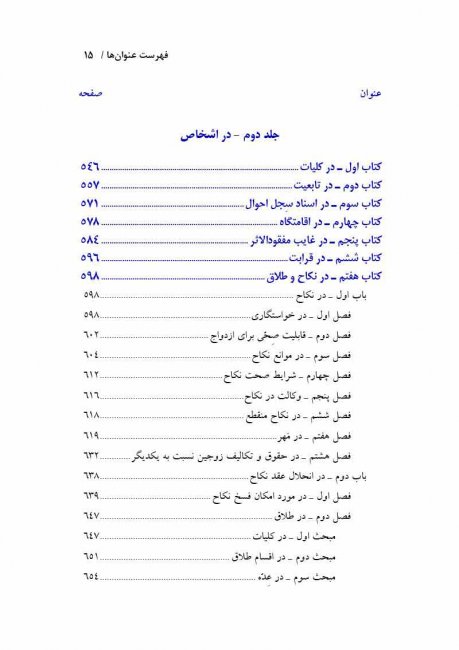 فهرست عنوان‌ها / ۱۵
عنوان صفحه
جلد دوم – در اشخاص
کتاب اول ـ در کلیات ۵٤٦
کتاب دوم ـ در تابعیت ۵۵۷
کتاب سوم ـ در اسناد سِجل احوال ۵۷۱
کتاب چهارم ـ در اقامتگاه ۵۷۸
کتاب پنجم ـ در غایب مفقودالاثر ۵۸٤
کتاب ششم ـ در قرابت ۵۹٦
کتاب هفتم ـ در نکاح و طلاق ۵۹۸
باب اول ـ در نکاح ۵۹۸
فصل اول ـ در خواستگاری ۵۹۸
فصل دوم ـ قابلیت صِحّی برای ازدواج ٦۰۲
فصل سوم ـ در موانع نکاح ٦۰٤
فصل چهارم ـ شرایط صحت نکاح ٦۱۲
فصل پنجم ـ وکالت در نکاح ٦۱٦
فصل ششم ـ در نکاح منقطع ٦۱۸
فصل هفتم ـ در مَهر ٦۱۹
فصل هشتم ـ در حقوق و تکالیف زوجین نسبت به یکدیگر ٦۳۲
باب دوم ـ در انحلال عقد نکاح ٦۳۸
فصل اول ـ در مورد امکان فسخ نکاح ٦۳۹
فصل دوم ـ در طلاق ٦٤۷
مبحث اول ـ در کلیات ٦٤۷
مبحث دوم ـ در اقسام طلاق ٦۵۱
مبحث سوم ـ در عِدّه ٦۵٤